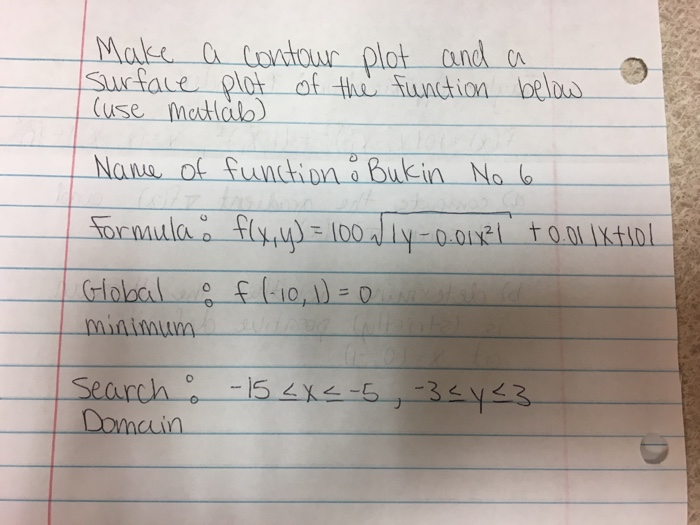 Make a contour plot and a
surface plot of the function below
(use matlab)
Name of function : Bukin No 6
Formula : f(x,y) = 100 √|y-0.01x²| + 0.01 |x+10|
Global : f (-10, 1) = 0
minimum
Search : -15 ≤ x ≤ -5 , -3 ≤ y ≤ 3
Domain